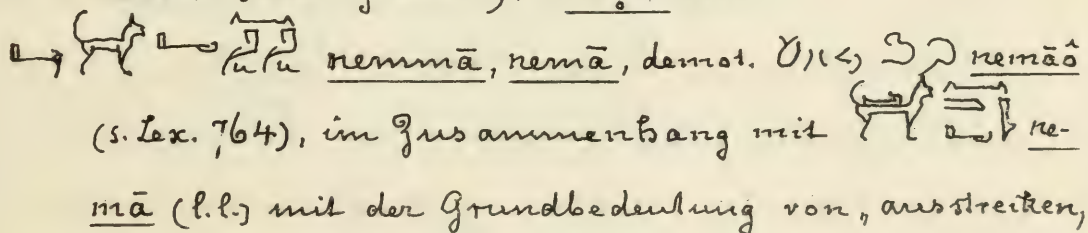 nemmā, nemā, demot. nemāô
(s. Lex. 764), im Zusammenhang mit ne-
mā (l.l.) mit der Grundbedeutung von „ausstrecken,